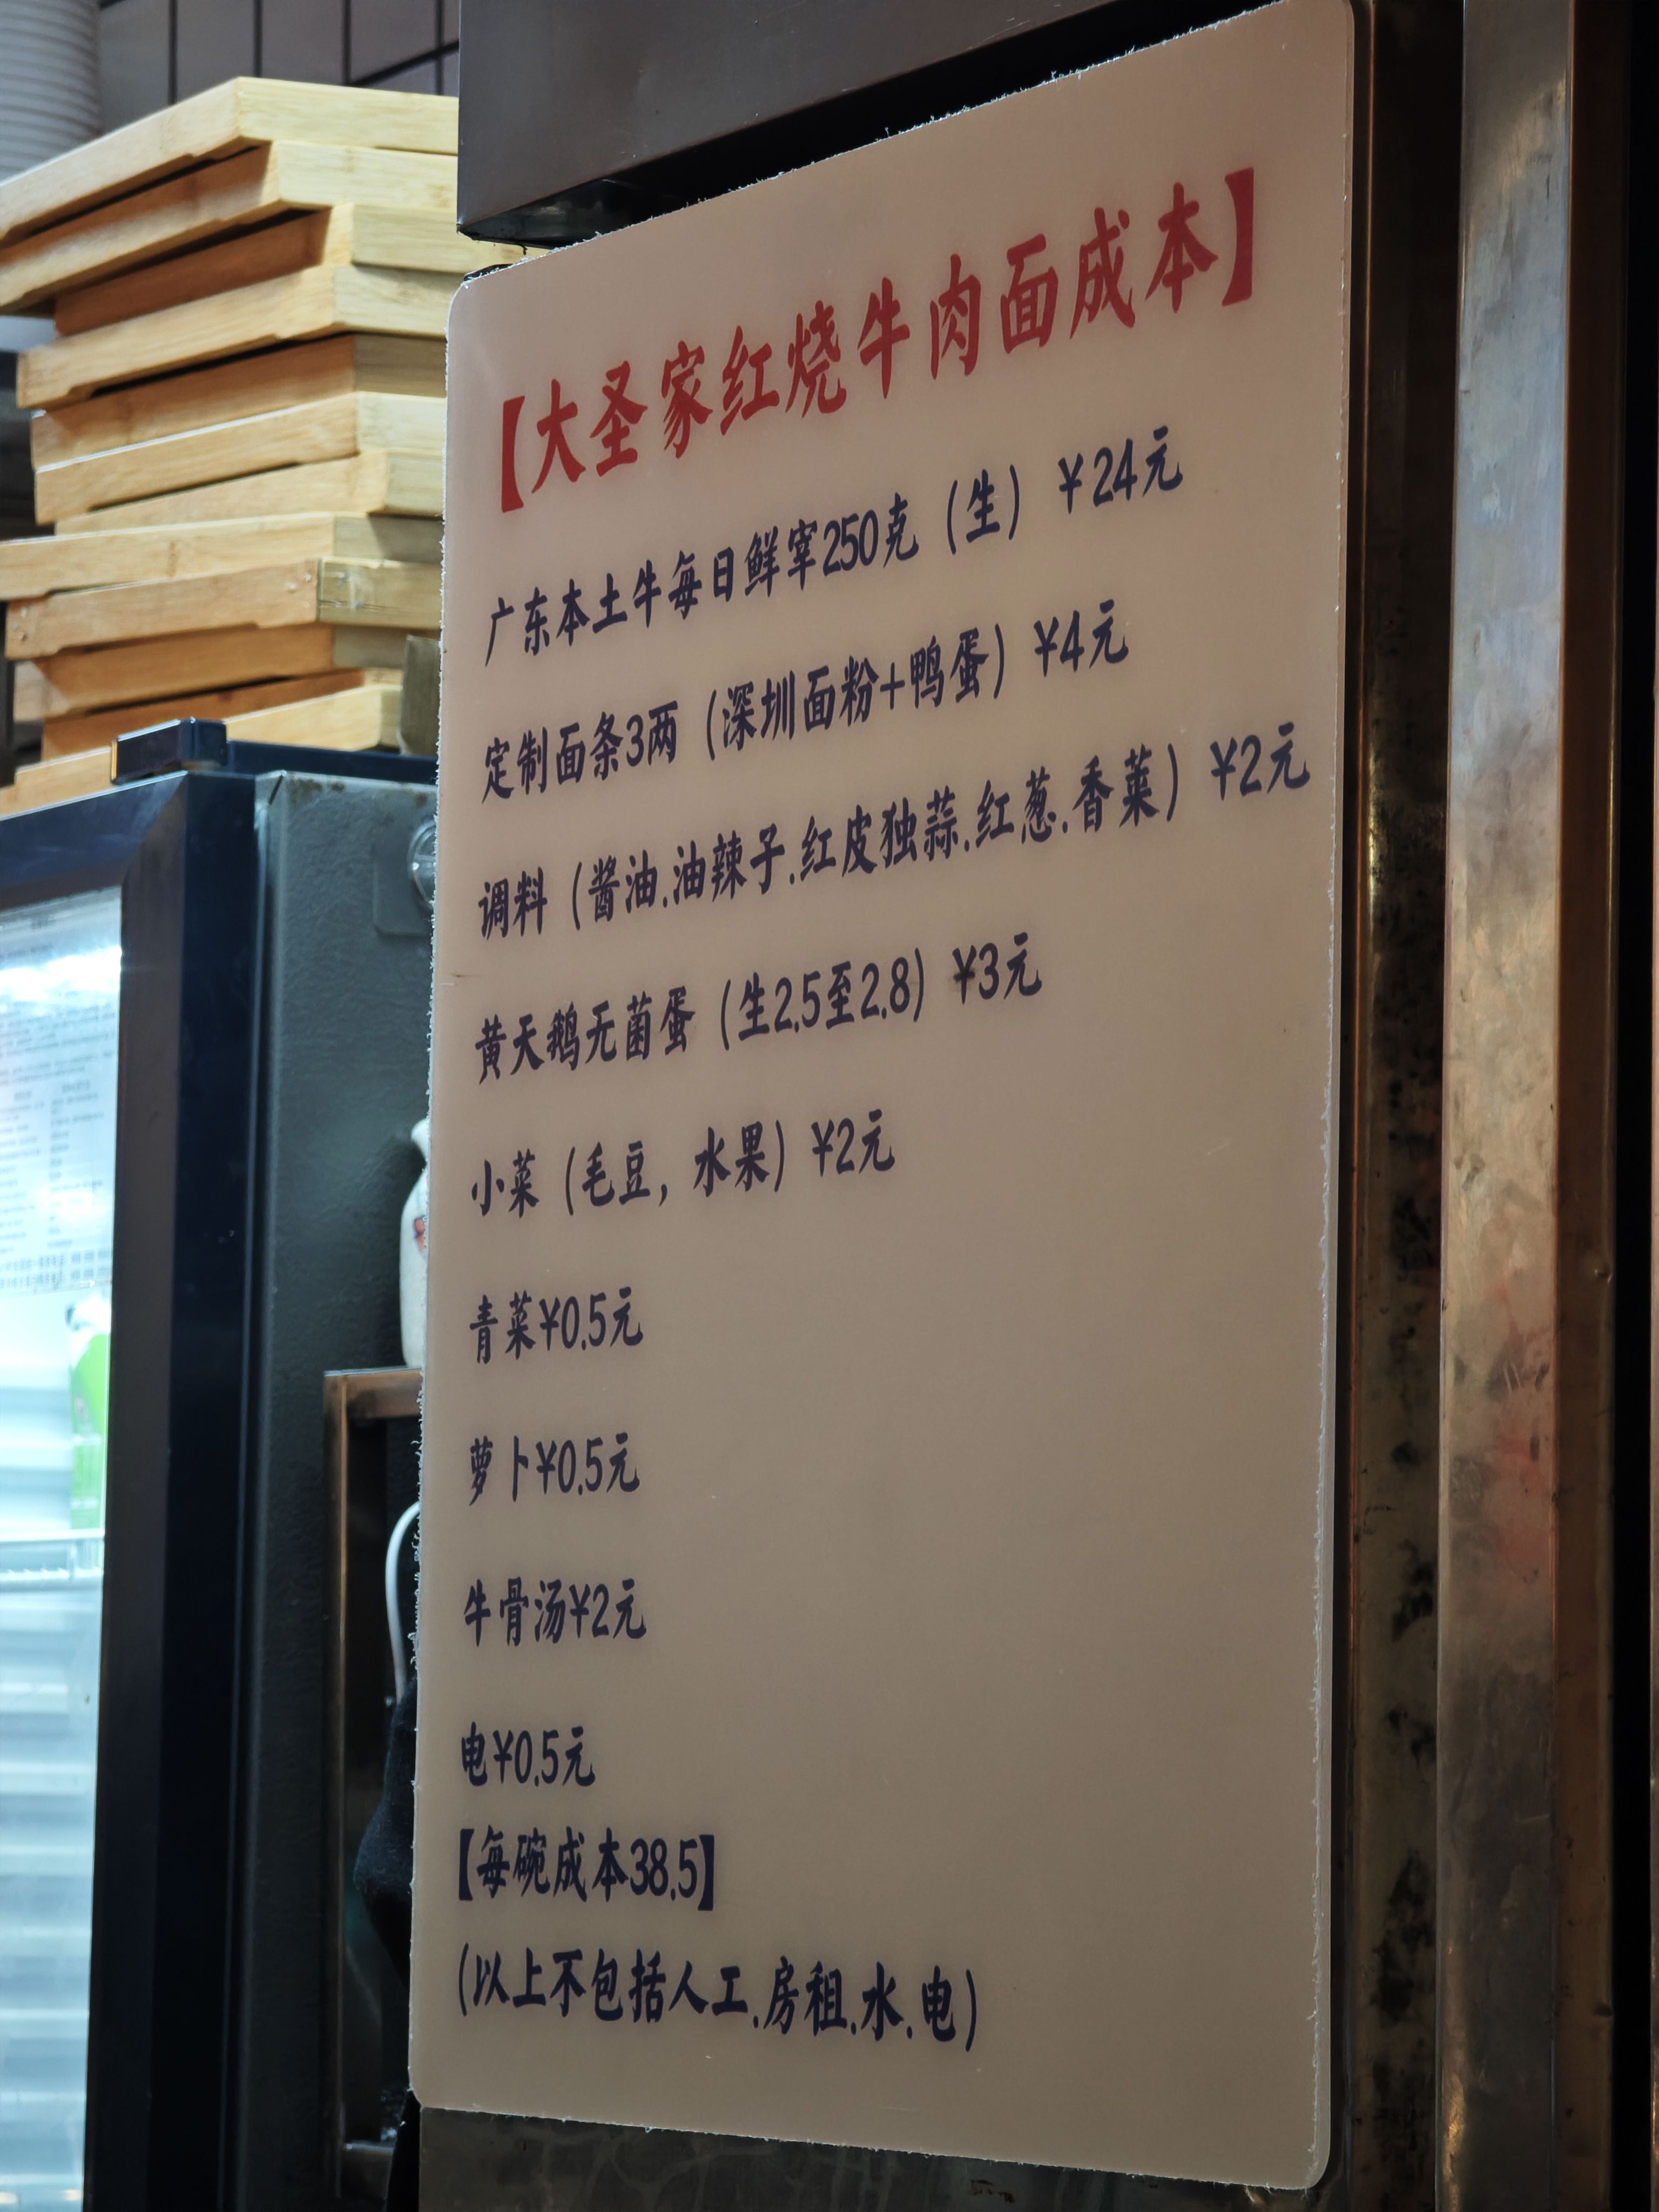 【大圣家红烧牛肉面成本】
广东本土牛每日鲜宰250克（生）￥24元
定制面条3两（深圳面粉+鸭蛋）￥4元
调料（酱油.油辣子.红皮独蒜.红葱.香菜）￥2元
黄天鹅无菌蛋（生2.5至2.8）￥3元
小菜（毛豆，水果）￥2元
青菜￥0.5元
萝卜￥0.5元
牛骨汤￥2元
电￥0.5元
【每碗成本38.5】
（以上不包括人工.房租.水.电）